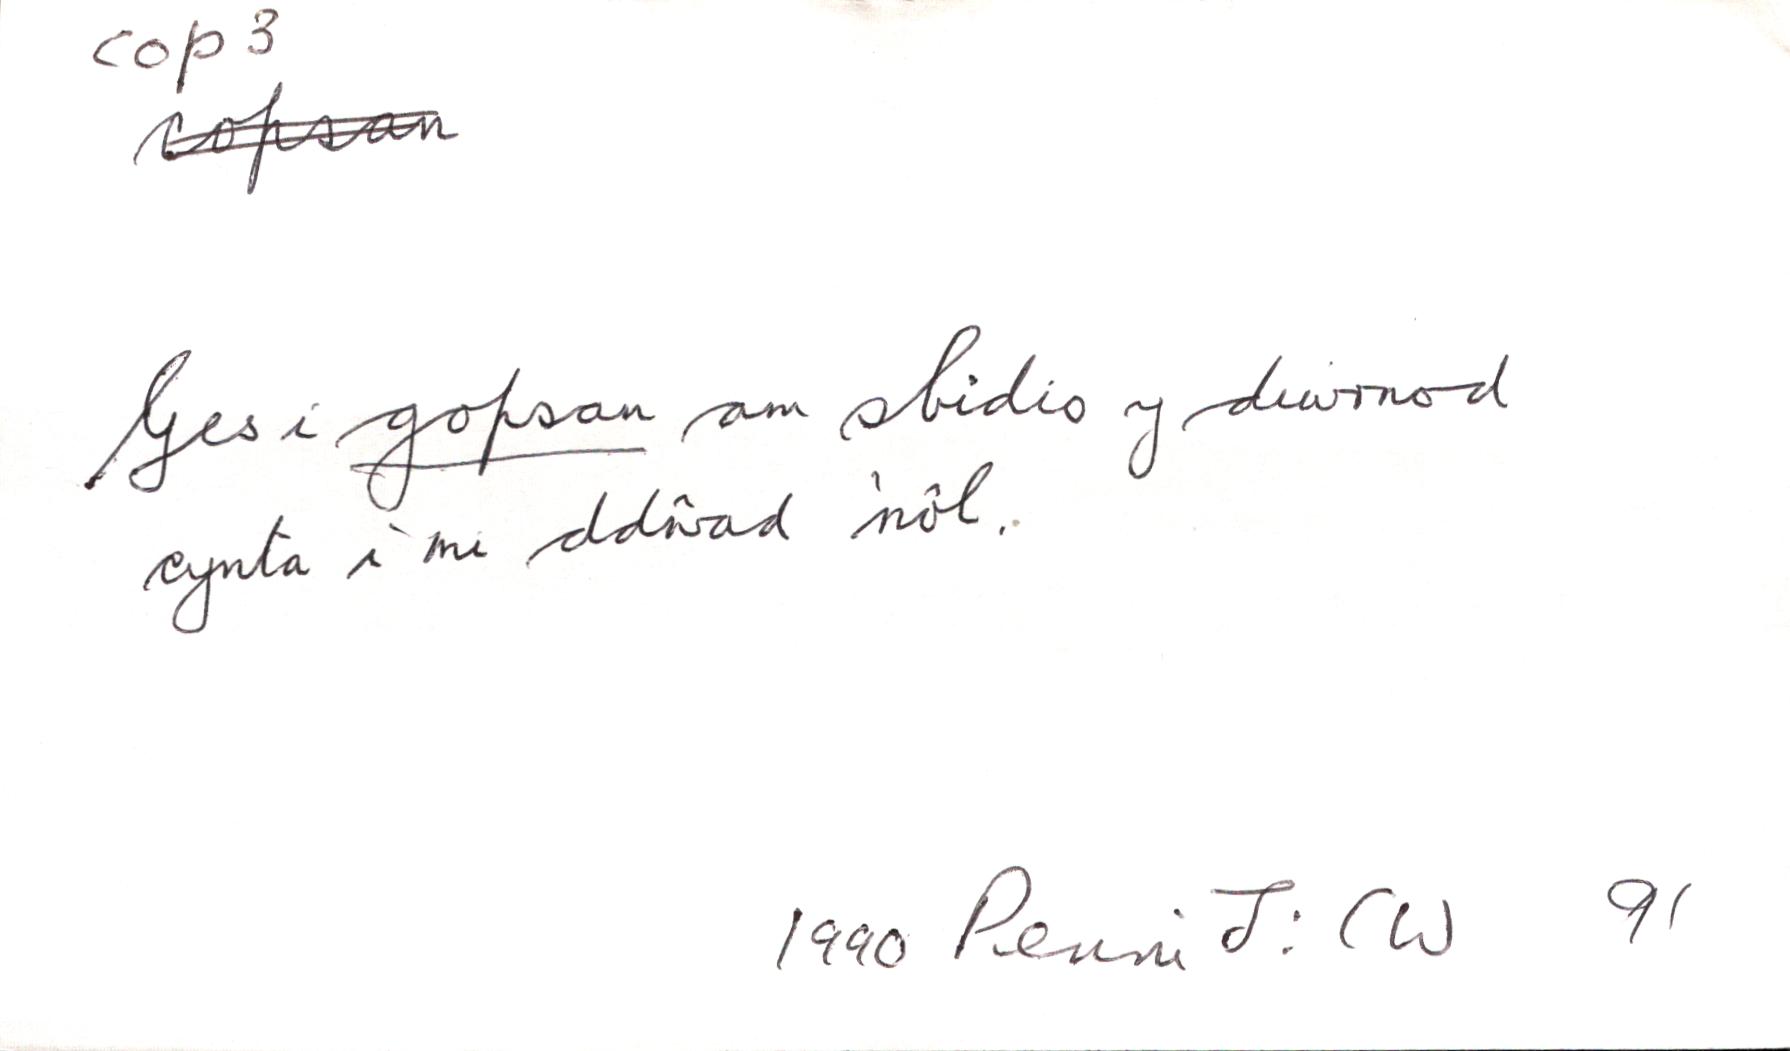 cop 3
copsan
Ges i gopsan am sbidio y diwrnod
cynta i mi ddŵad 'nôl.
1990 Renni J: CW 91